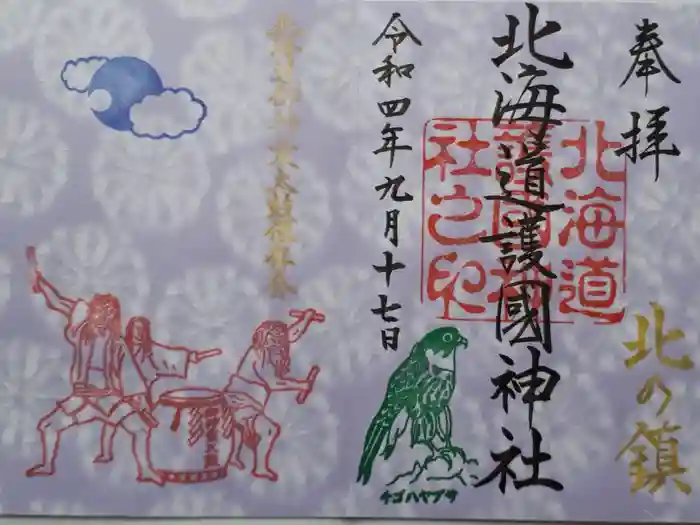 奉拝
北の鎮
北海道護國神社
北海道
護國神
社之印
令和四年九月十七日
チゴハヤブサ